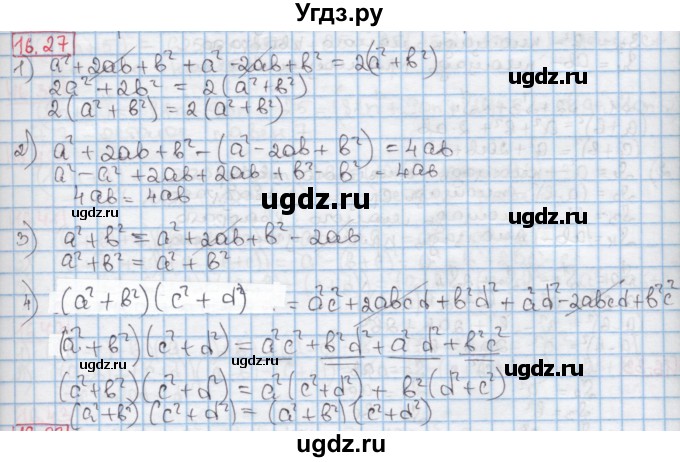 Угдз.ру
16.27
1) a² + 2ab + b² + a² - 2ab + b² = 2(a² + b²)
2a² + 2b² = 2(a² + b²)
2(a² + b²) = 2(a² + b²)
2) a² + 2ab + b² - (a² - 2ab + b²) = 4ab
a² - a² + 2ab + 2ab + b² - b² = 4ab
4ab = 4ab
ugdz.ru
ugdz.ru
ugdz.ru
ugdz.ru
3) a² + b² = a² + 2ab + b² - 2ab
a² + b² = a² + b²
4) (a² + b²)(c² + d²) = a²c² + 2abcd + b²d² + a²d² - 2abcd + b²c²
(a² + b²)(c² + d²) = a²c² + b²d² + a²d² + b²c²
ugdz.ru
ugdz.ru
ugdz.ru
(a² + b²)(c² + d²) = a²(c² + d²) + b²(d² + c²)
(a² + b²)(c² + d²) = (a² + b²)(c² + d²)
ugdz.ru